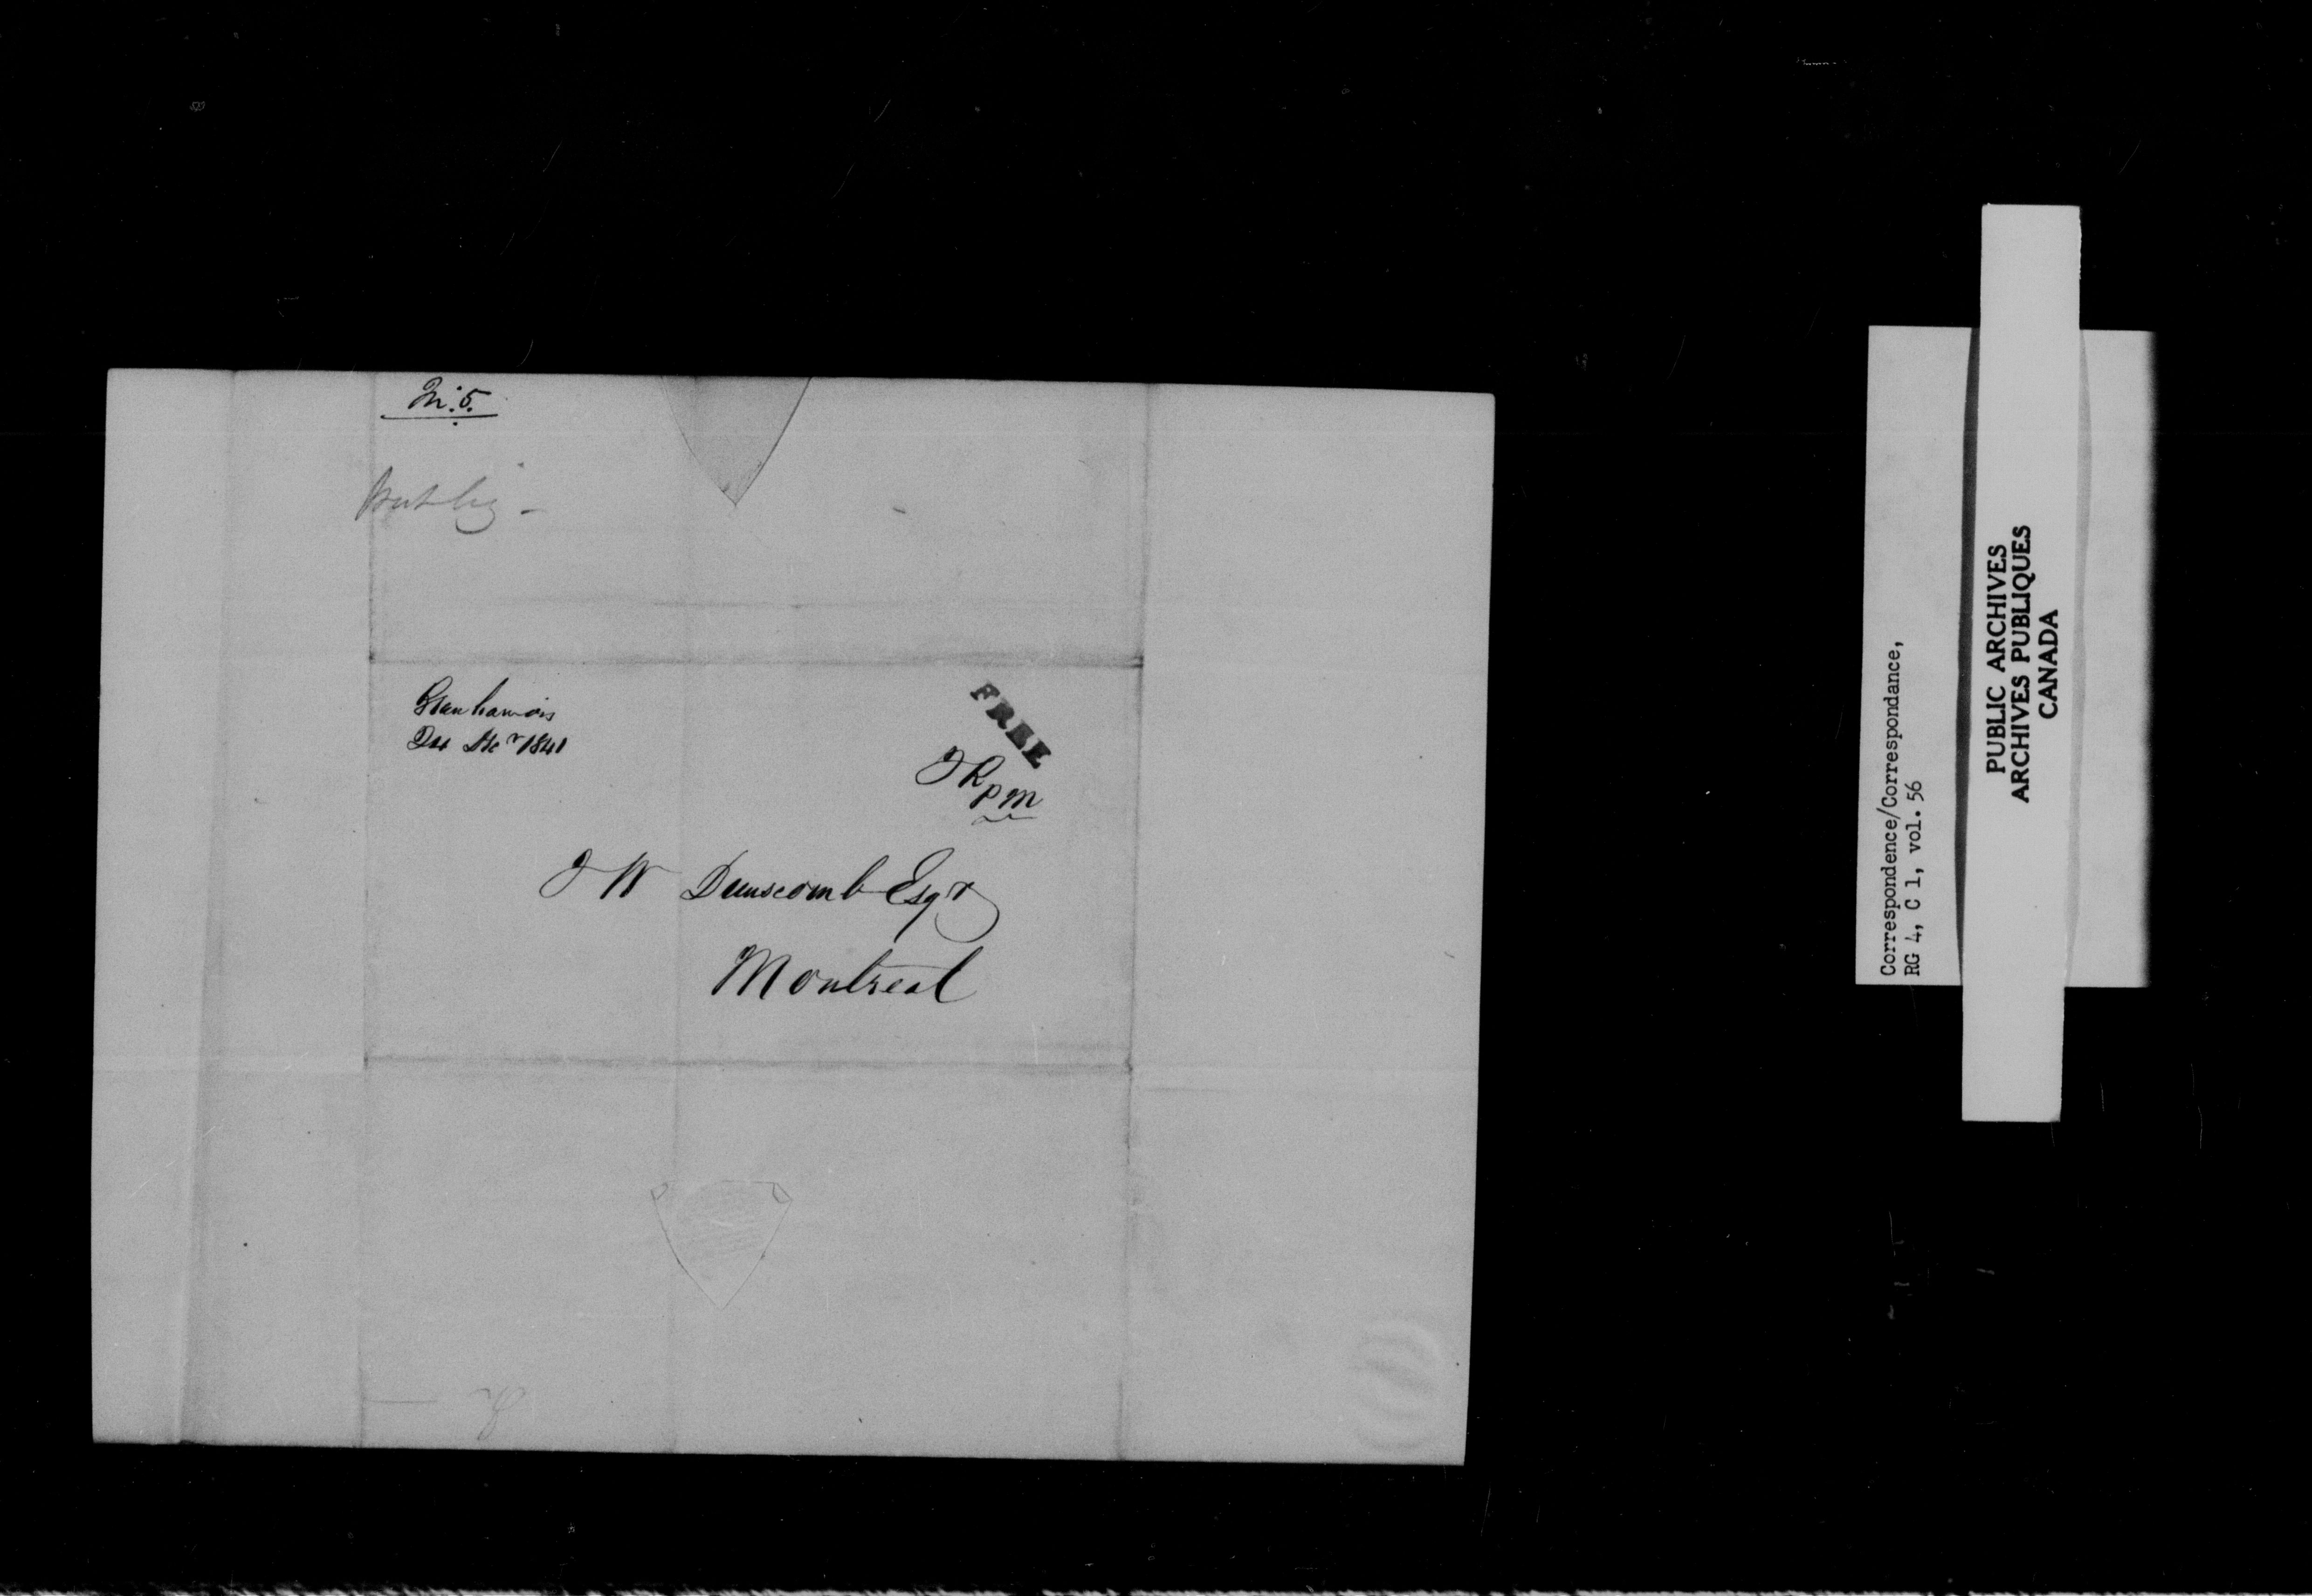 No: 5.
Beauharnois
Dec 1841
FREE
J R
P M
J W Dunscomb Esqr
Montreal
Correspondence/Correspondance,
RG 4, C 1, vol. 56
PUBLIC ARCHIVES
ARCHIVES PUBLIQUES
CANADA